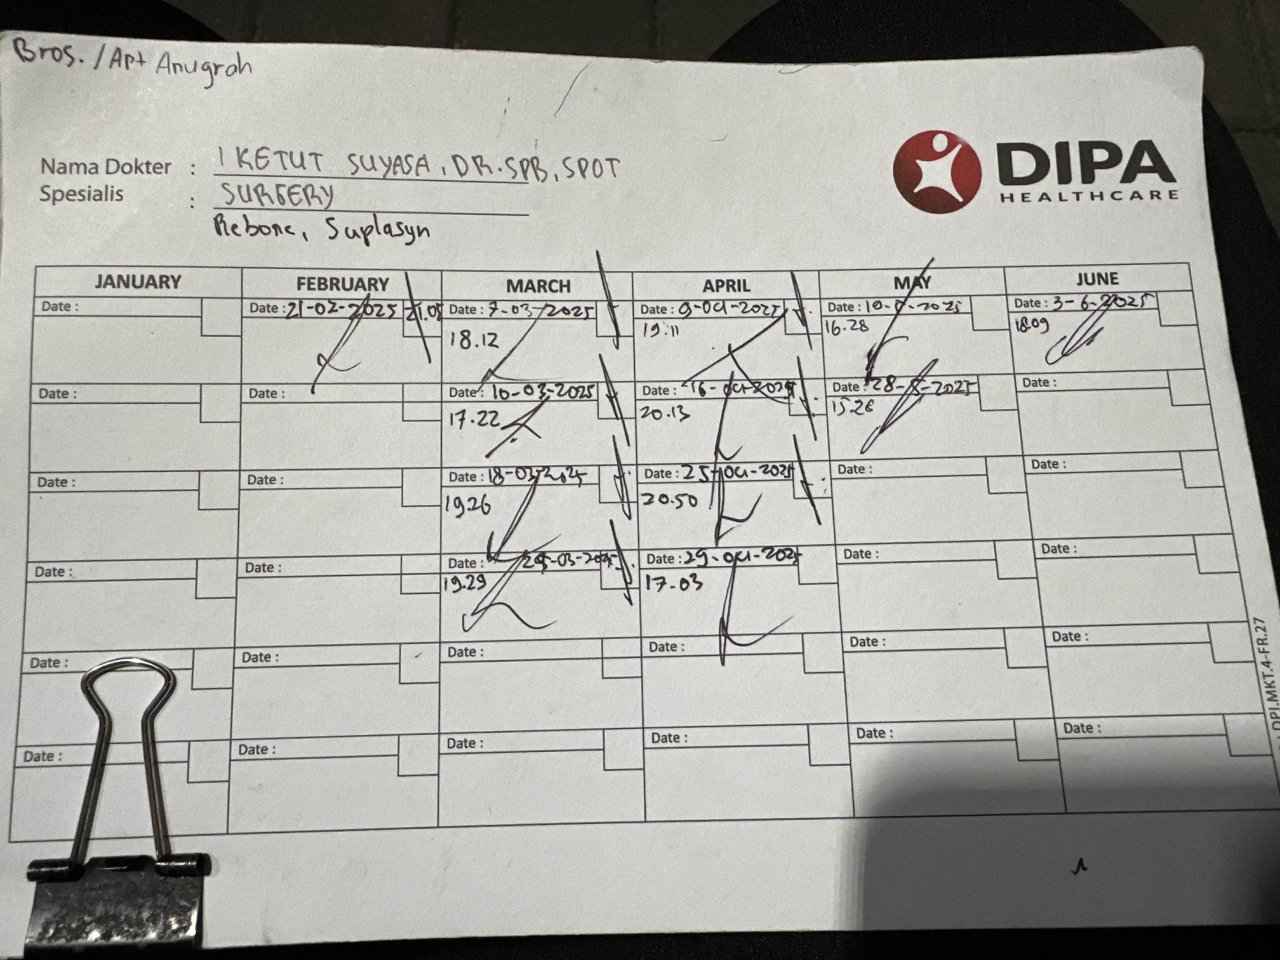 Bros. / Apt Anugrah
DIPA
HEALTHCARE
Nama Dokter : I KETUT SUYASA, DR. SPB, SPOT
Spesialis : SURGERY
Rebone, Suplasyn
JANUARY FEBRUARY MARCH APRIL MAY JUNE
Date : Date : 21-02-2025 21.05 Date : 7-03-2025 Date : 9-04-2025 Date : 10-5-2025 Date : 3-6-2025
18.12 19.11 16.28 18.09
Date : Date : Date : 10-03-2025 Date : 16-04-2025 Date : 28-5-2025 Date :
17.22 20.13 15.28
Date : Date : Date : 18-03-2025 Date : 25-04-2025 Date : Date :
19.26 20.50
Date : Date : Date : 29-03-2025 Date : 29-04-2025 Date : Date :
19.29 17.03
Date : Date : Date : Date : Date : Date :
Date : Date : Date : Date : Date : Date :
DPI.MKT.4-FR.27